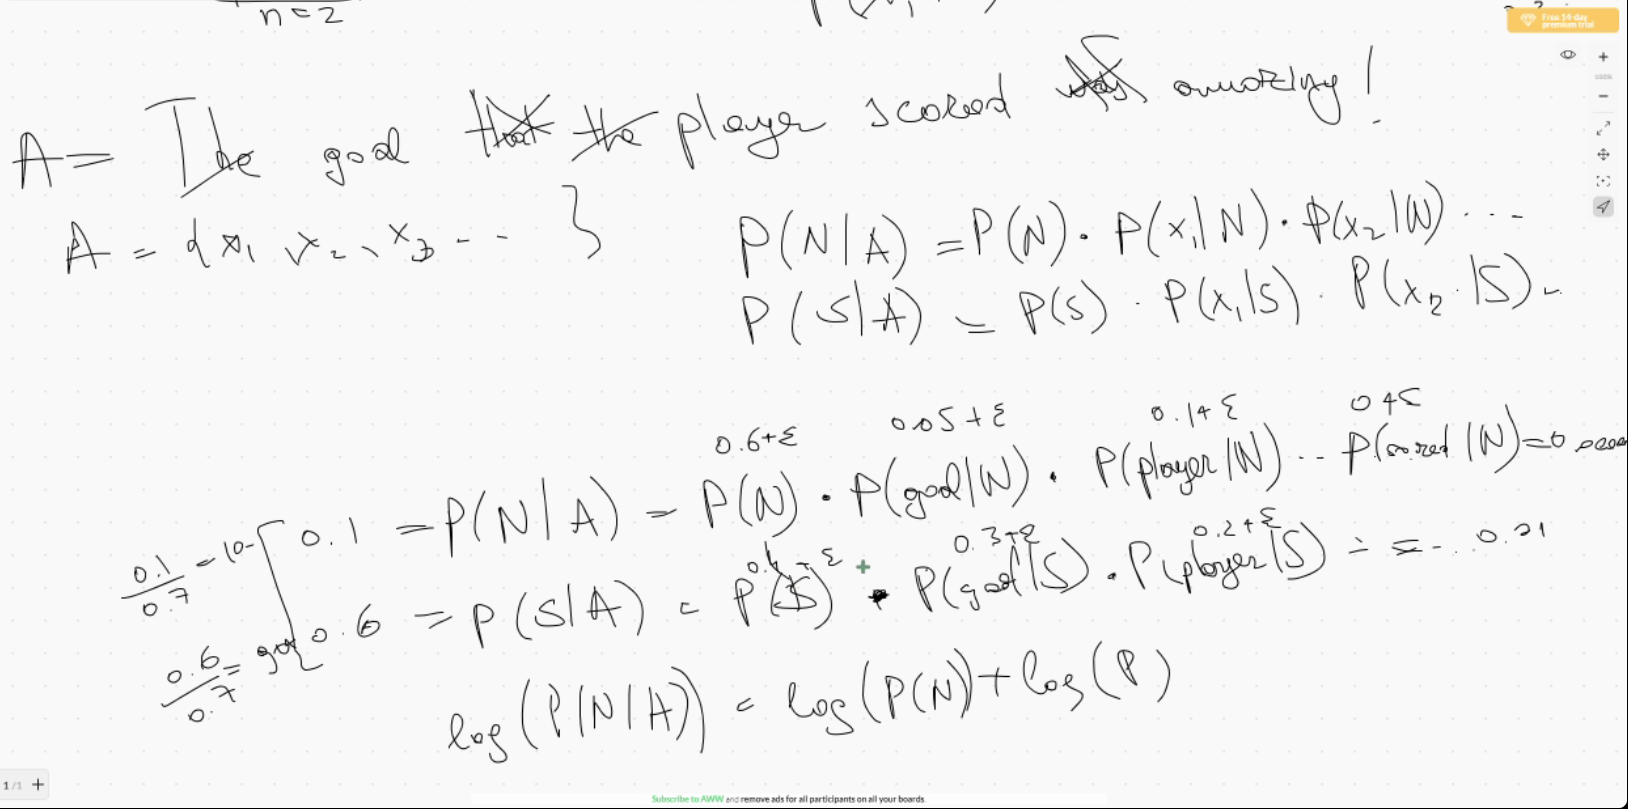 n = 2
P(x,
Free 14-day
premium trial
A = The goal that the player scored was amazing!
A = {x₁, x₂, x₃ - - }
P(N|A) = P(N) · P(x₁|N) · P(x₂|N) ...
P(S|A) = P(S) · P(x₁|S) · P(x₂|S)
0.6+ε 0.05+ε 0.1+ε 0.45
0.1 = P(N|A) = P(N) · P(goal|N) · P(player|N) ... P(scored|N) = 0.000
0.4+ε 0.3+ε 0.2+ε
0.6 = P(S|A) = P(S) · P(goal|S) · P(player|S) = 0.01
0.1/0.7 = 10-
0.6/0.7 = 90%
log(P(N|A)) = log(P(N)) + log(P )
100%
1/1 +
Subscribe to AWW and remove ads for all participants on all your boards